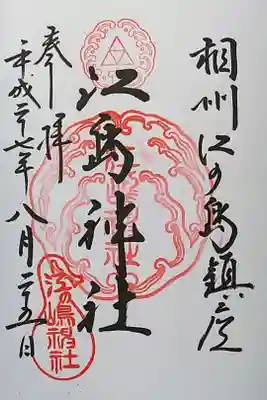 相州江の島鎮座
江島神社
奉拝
平成二十七年八月二十五日